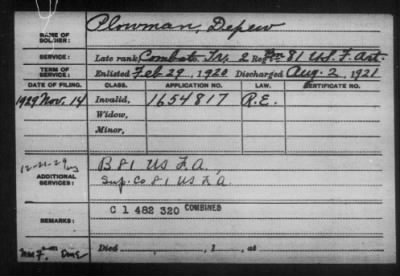 NAME OF SOLDIER: Plowman, Depew
SERVICE: Late rank, Combat Tr, 2 Reg 81 U.S. F. Art.
TERM OF SERVICE: Enlisted Feb 29, 1920 Discharged Aug. 2, 1921
DATE OF FILING. CLASS. APPLICATION NO. LAW. CERTIFICATE NO.
1929 Nov. 14 Invalid, 1654817 R.E.
Widow,
Minor,
12-21-29
ADDITIONAL SERVICES: B 81 US F A,
Sup. Co 81 US F A
REMARKS: C 1 482 320 COMBINED
Died , 1 , at